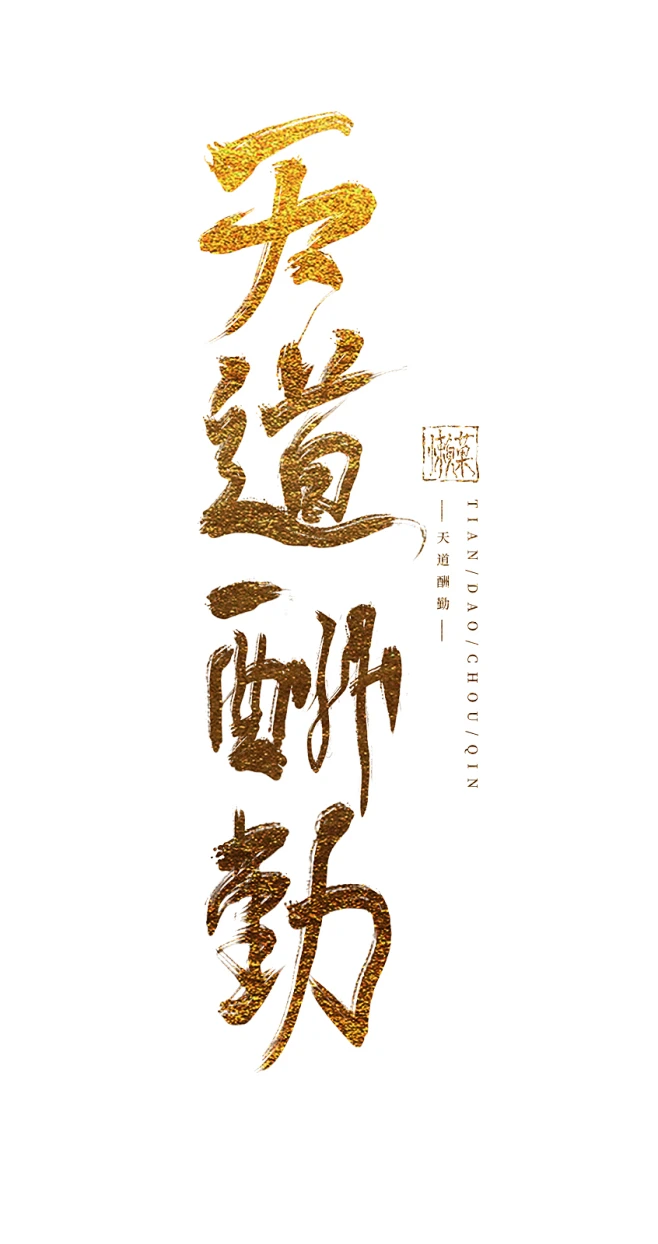 天道酬勤
— 天道酬勤 —
TIAN/DAO/CHOU/QIN